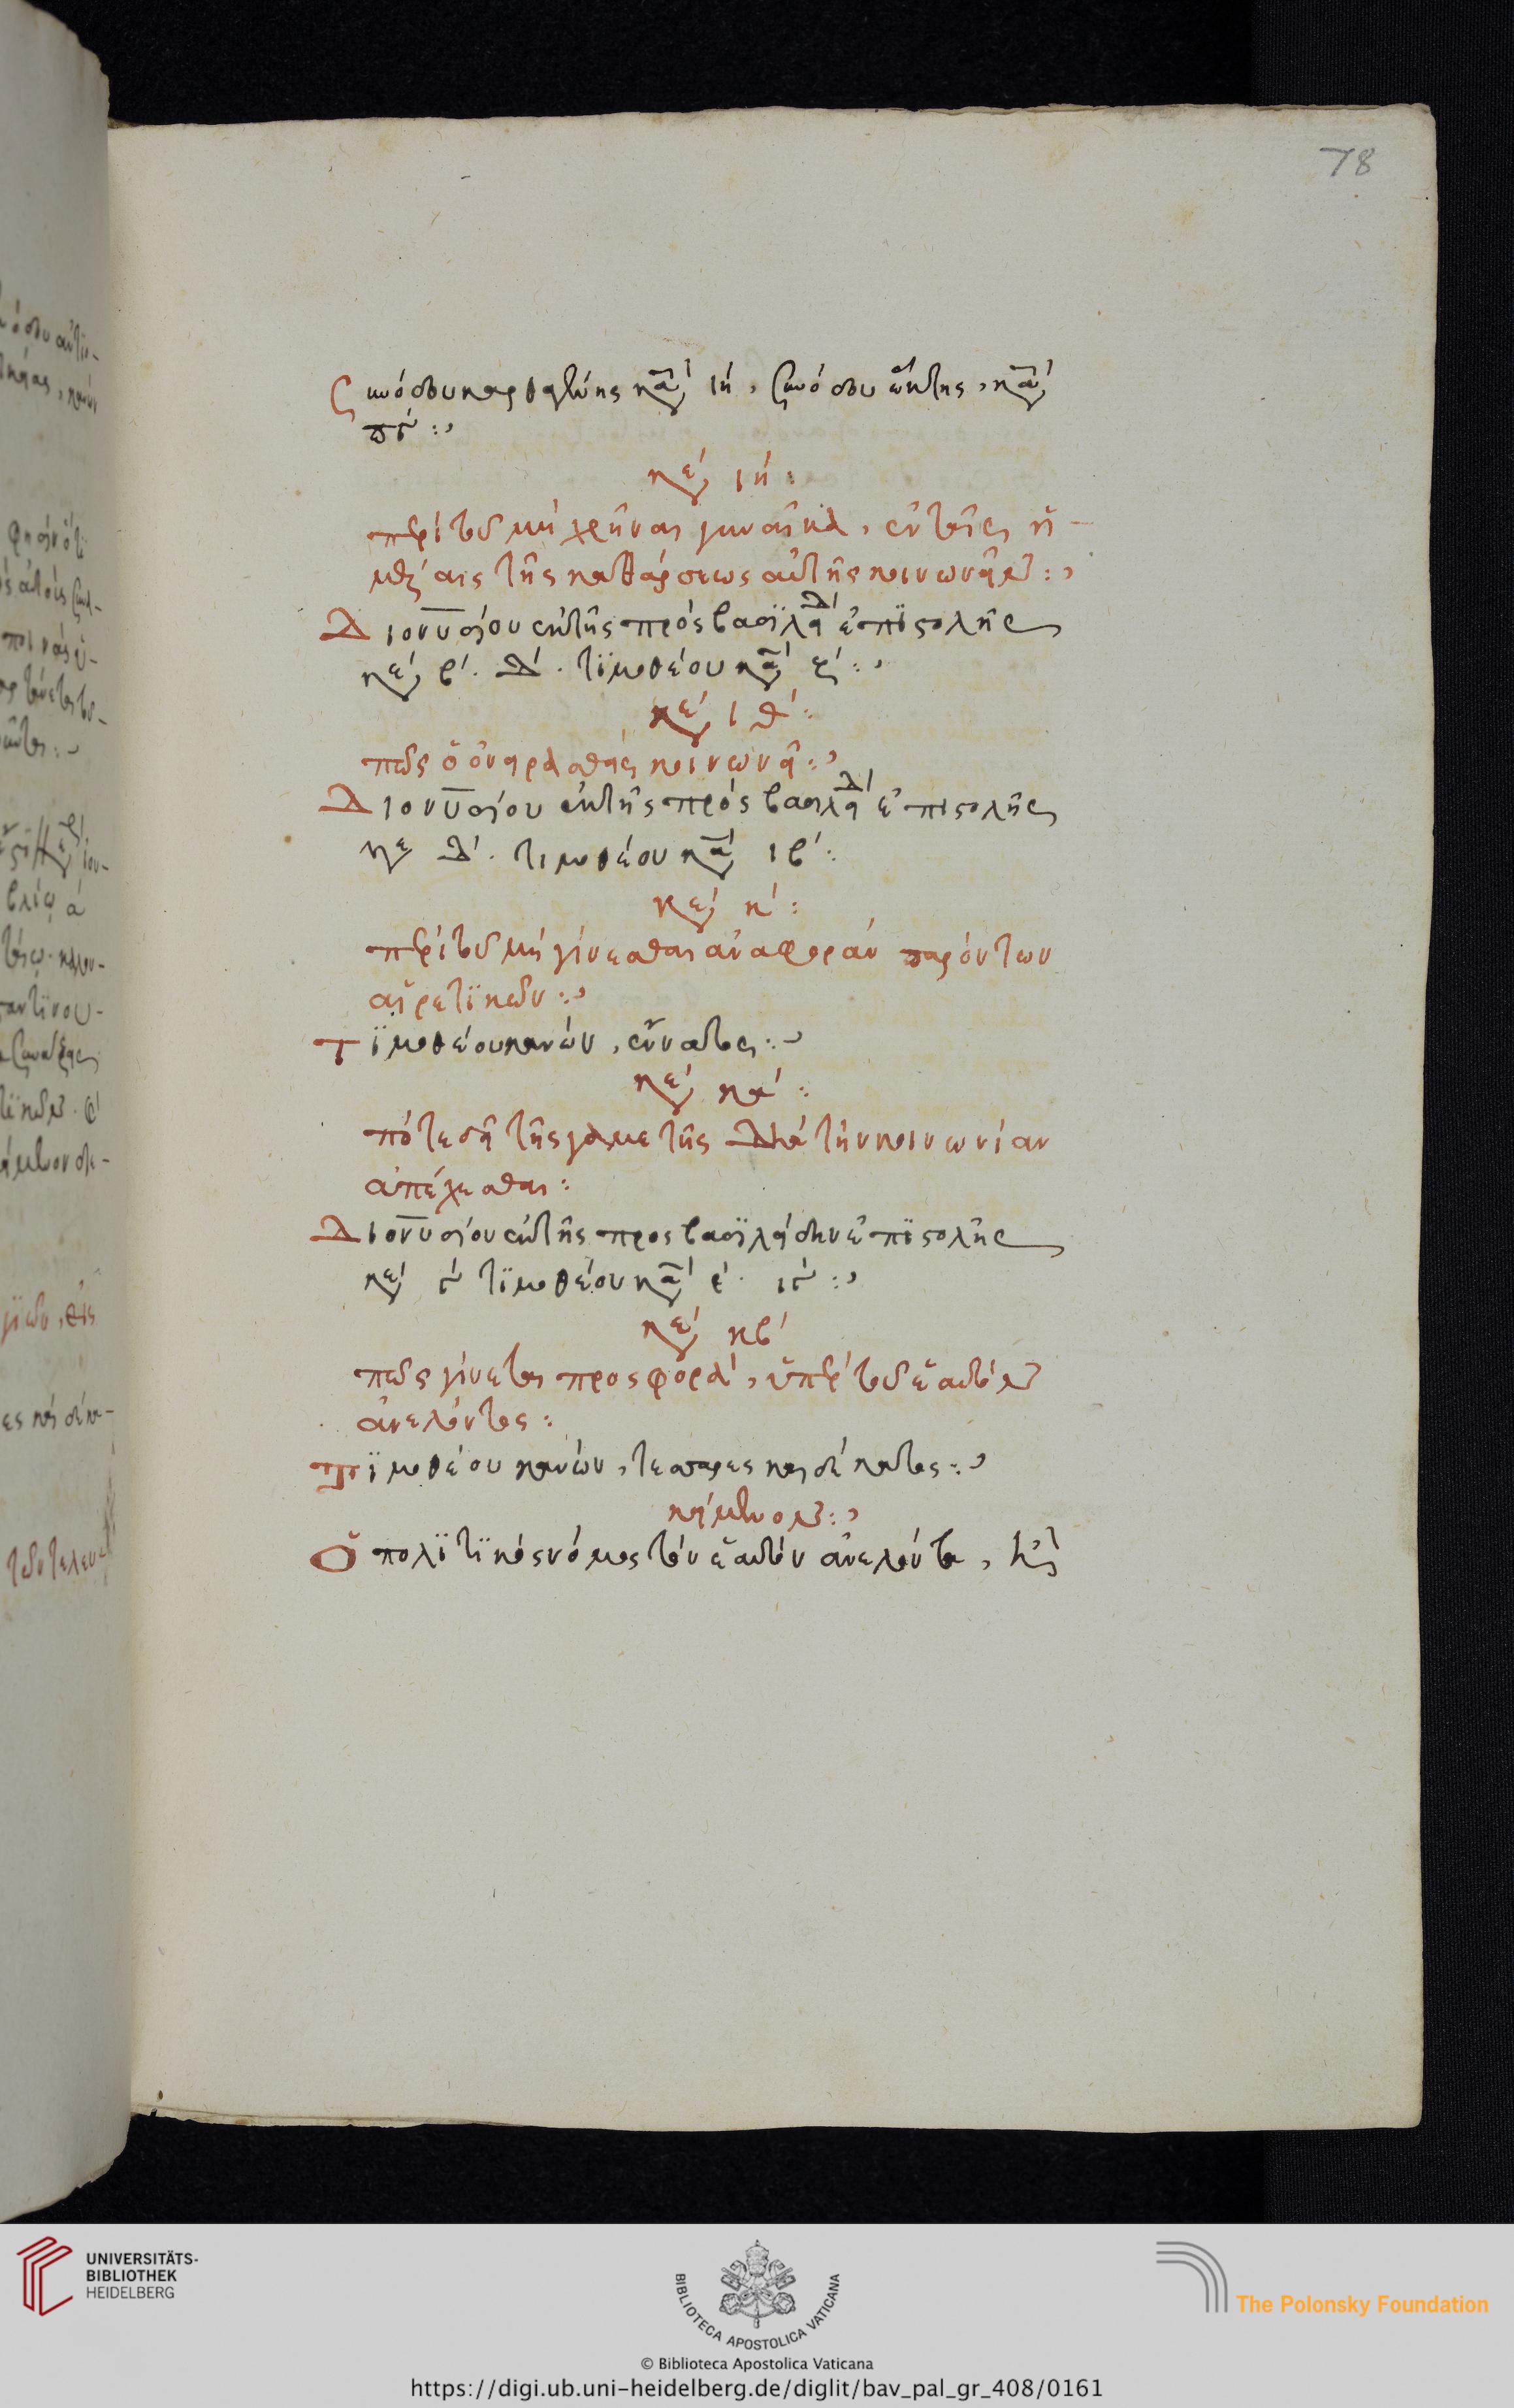 78
Συνόδου καρθαγένης κα΄ ιη΄, συνόδου ἕκτης, κα΄
πγ΄ :,
κε΄ ιη΄ :
περὶ τοῦ μὴ χρῆναι γυναῖκα, ἐν ταῖς ἡ-
μέραις τῆς καθάρσεως αὐτῆς κοινωνεῖν :,
Διονυσίου ἐκ τῆς πρὸς βασϊλείδ΄ ἐπϊστολῆς
κε΄ β΄. δ΄. τϊμοθέου κα΄ ζ΄ :,
κε΄ ιθ΄ :
πῶς ὁ ὀνειραχθεὶς κοινωνεῖ :,
Διονυσίου ἐκ τῆς πρὸς βασιλείδ΄ ἐπιστολῆς
κε δ΄. τιμοθέου κα΄ ιβ΄ :
κε΄ κ΄ :
περὶ τοῦ μὴ γίνεσθαι ἀναφορὰν παρόντων
αἱρετϊκῶν :,
Τϊμοθέου κανὼν, ἔννατος :,
κε΄ κα΄ :
πότε δεῖ τῆς γαμετῆς διὰ τὴν κοινωνίαν
ἀπέχεσθαι :
Διονυσίου ἐκ τῆς προς βασϊλείδην ἐπϊστολῆς
κε΄ γ΄ τϊμοθέου κα΄ ε΄. ιγ΄ :,
κε΄ κβ΄
πῶς γίνεται προσφορὰ, ὑπὲρ τοῦ ἑαυτὸν
ἀνελόντος :
Τϊμοθέου κανὼν, τεσσαρες και δέκατος :,
κείμενον :,
Ὁ πολϊτϊκὸς νόμος τὸν ἑαυτὸν ἀνελόντα,
UNIVERSITÄTS-
BIBLIOTHEK
HEIDELBERG
BIBLIOTECA APOSTOLICA VATICANA
The Polonsky Foundation
© Biblioteca Apostolica Vaticana
https://digi.ub.uni-heidelberg.de/diglit/bav_pal_gr_408/0161